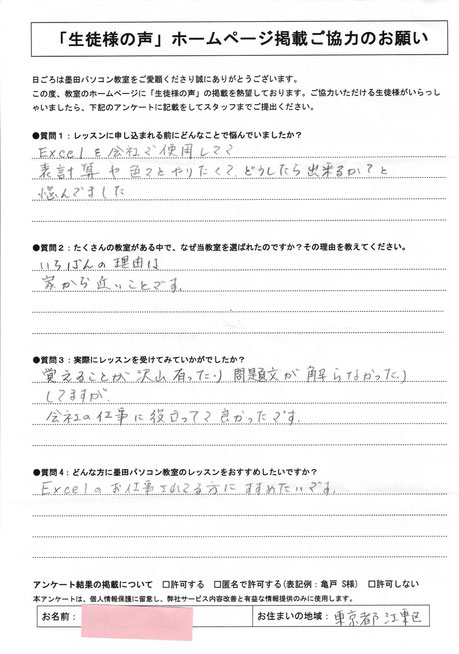 「生徒様の声」ホームページ掲載ご協力のお願い
日ごろは墨田パソコン教室をご愛顧くださり誠にありがとうございます。
この度、教室のホームページに「生徒様の声」の掲載を熱望しております。ご協力いただける生徒様がいらっし
ゃいましたら、下記のアンケートに記載をしてスタッフまでご提出ください。
●質問1：レッスンに申し込まれる前にどんなことで悩んでいましたか？
Excelを会社で使用してて
表計算や色々とやりたくて、どうしたら出来るか？と
悩んでました
●質問2：たくさんの教室がある中で、なぜ当教室を選ばれたのですか？その理由を教えてください。
いちばんの理由は
家から近いことです。
●質問3：実際にレッスンを受けてみていかがでしたか？
覚えることが沢山有ったり 問題文が解らなかったり
してますが、
会社の仕事に役立ってて良かったです。
●質問4：どんな方に墨田パソコン教室のレッスンをおすすめしたいですか？
Excelのお仕事されてる方にすすめたいです。
アンケート結果の掲載について □許可する □匿名で許可する(表記例：亀戸 S様) □許可しない
本アンケートは、個人情報保護に留意し、弊社サービス内容改善と有益な情報提供のみに使用します。
お名前： お住まいの地域：東京都江東区